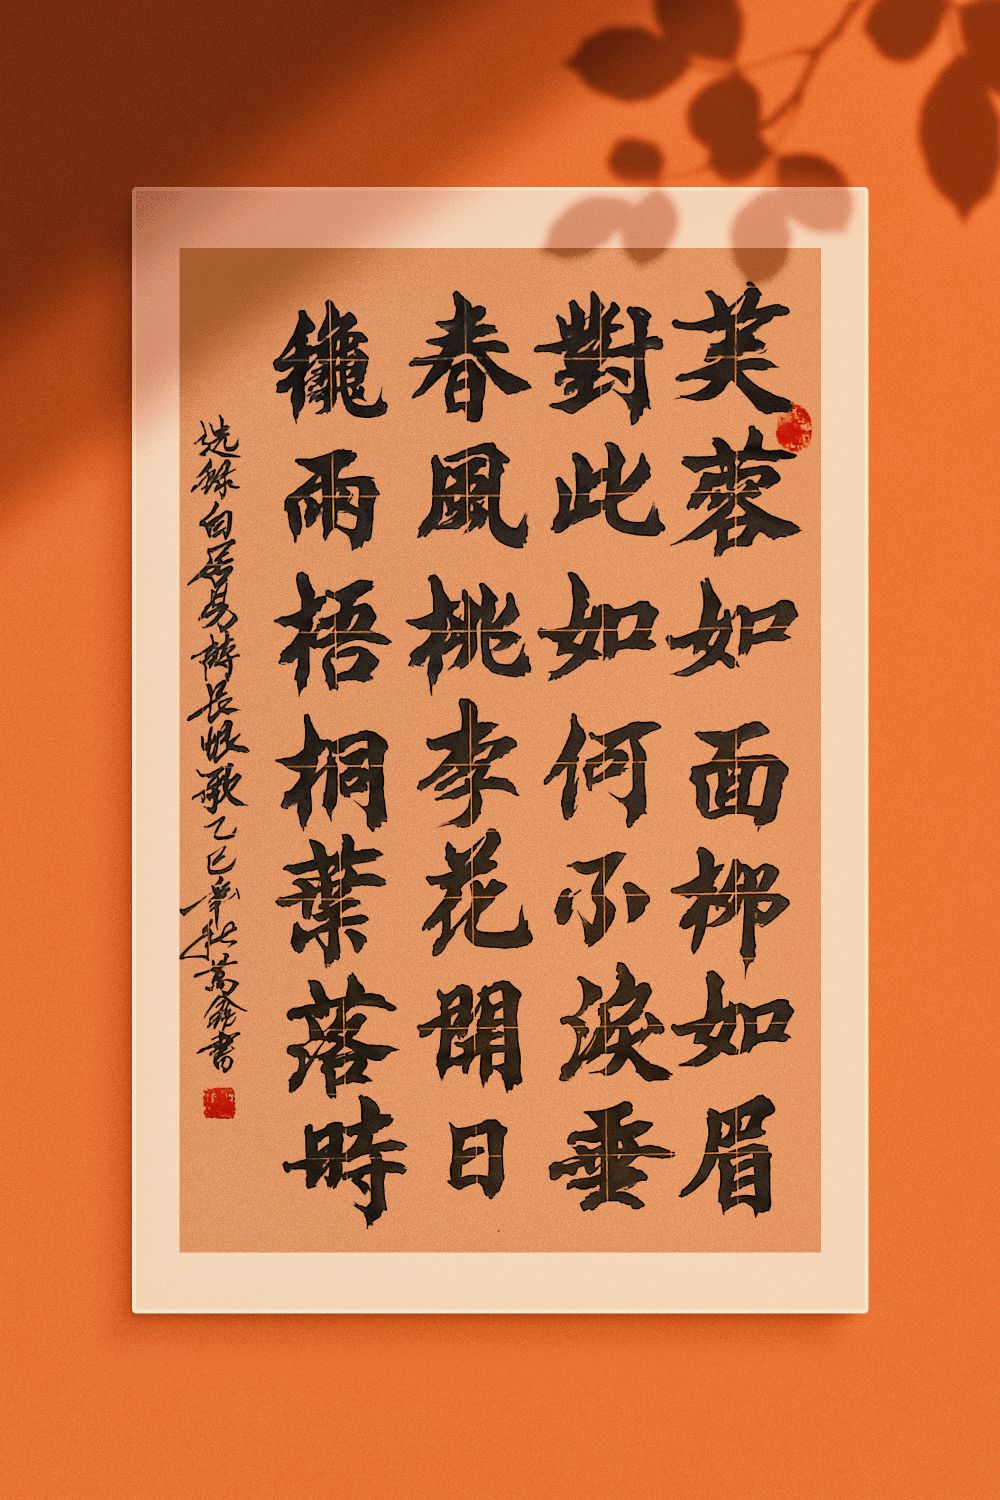 芙蓉如面柳如眉
對此如何不淚垂
春風桃李花開日
龝雨梧桐葉落時
选録白居易詩長恨歌乙巳年秋萬書